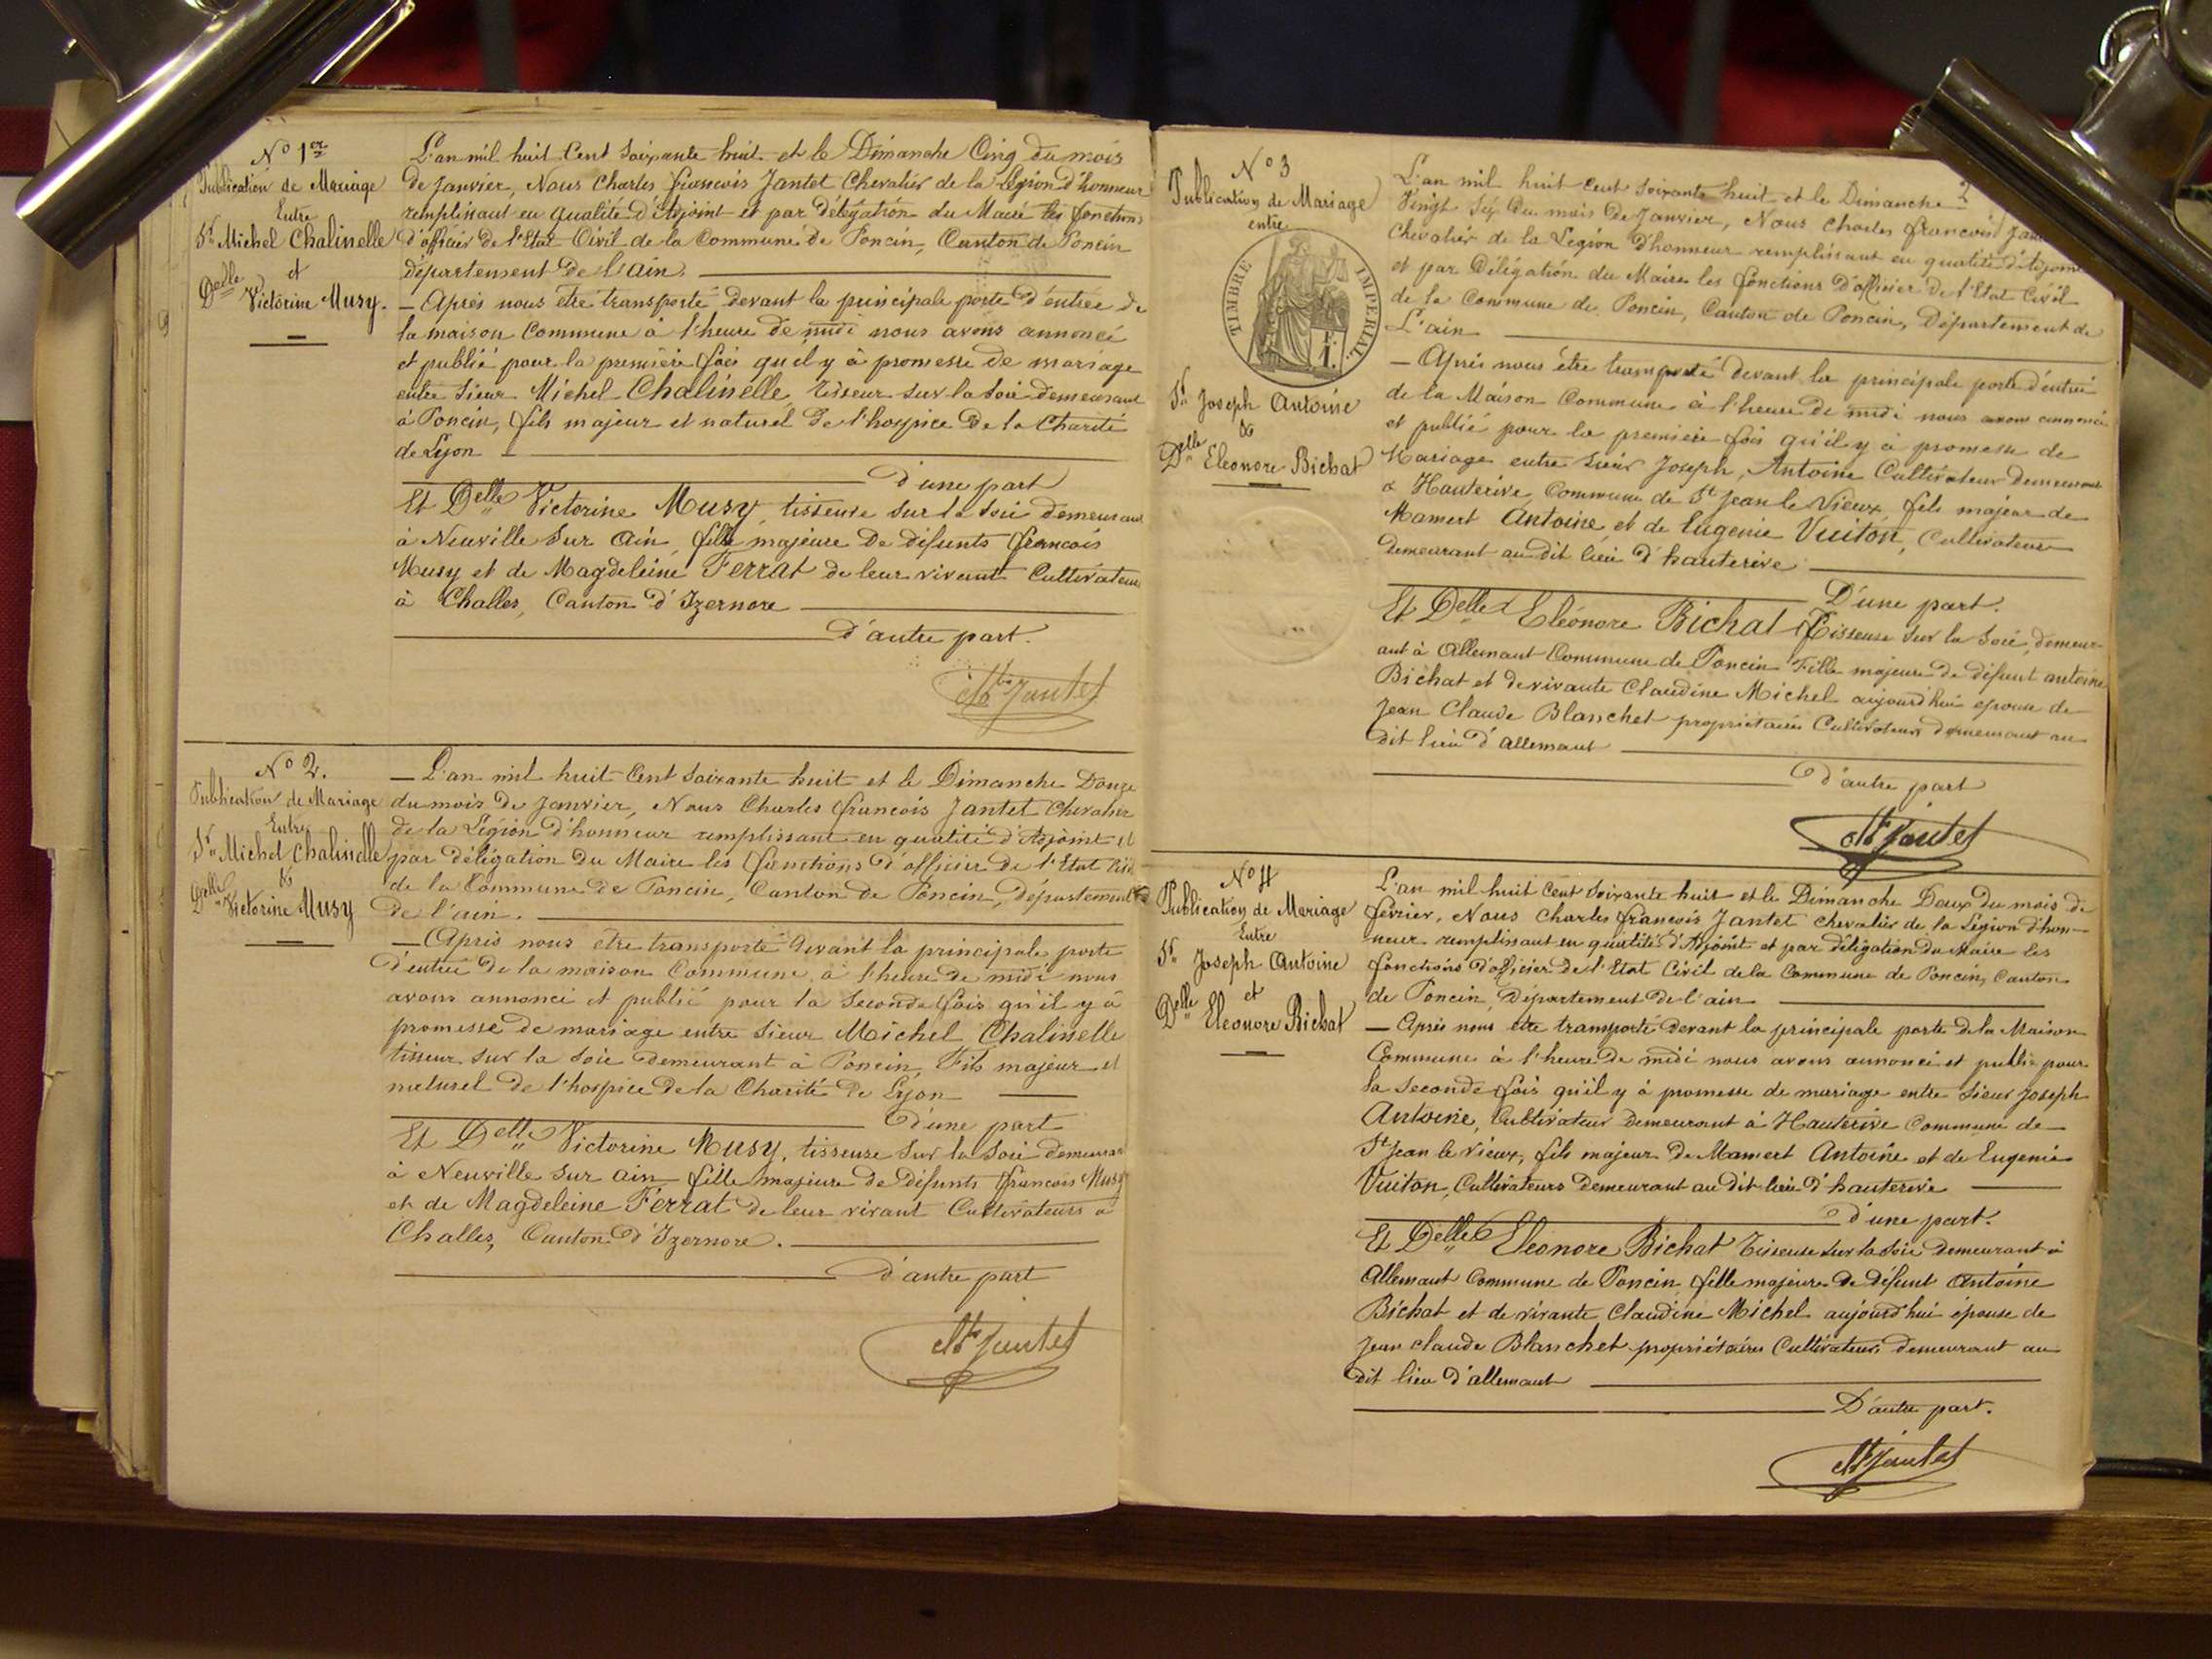 N° 1er
Publication de Mariage
Entre
Sr Michel Chalinelle
et
Delle Victorine Musy.
L'an mil huit Cent Soixante huit et le Dimanche Cinq du mois
de Janvier, Nous Charles François Jantet Chevalier de la Légion d'honneur
remplissant en qualité d'Adjoint et par Délégation du Maire les fonctions
d'officier de l'Etat Civil de la Commune de Poncin, Canton de Poncin
département de l'ain.
— Après nous être transporté devant la principale porte d'entrée de
la maison Commune à l'heure de midi nous avons annoncé
et publié pour la première fois qu'il y à promesse de mariage
entre Sieur Michel Chalinelle, tisseur sur la Soie demeurant
à Poncin, fils majeur et naturel de l'hospice de la Charité
de Lyon
d'une part
Et Delle Victorine Musy, tisseuse sur la Soie demeurant
à Neuville sur Ain, fille majeure de défunts françois
Musy et de Magdeleine Ferrat de leur vivant Cultivateurs
à Challes, Canton d'Izernore
d'autre part.
Ch Jantet
N° 2.
Publication de Mariage
Entre
Sr Michel Chalinelle
&
Delle Victorine Musy
— L'an mil huit Cent Soixante huit et le Dimanche Douze
du mois de Janvier, Nous Charles françois Jantet Chevalier
de la Légion d'honneur remplissant en qualité d'Adjoint et
par délégation du Maire les fonctions d'officier de l'Etat Civil
de la Commune de Poncin, Canton de Poncin, département
de l'ain.
— Après nous être transporté devant la principale porte
d'entrée de la maison Commune, à l'heure de midi nous
avons annoncé et publié pour la Seconde fois qu'il y à
promesse de mariage entre Sieur Michel Chalinelle
tisseur sur la Soie demeurant à Poncin, Fils majeur et
naturel de l'hospice de la Charité de Lyon
d'une part
Et Delle Victorine Musy, tisseuse sur la Soie demeurant
à Neuville sur ain fille majeure de défunts françois Musy
et de Magdeleine Ferrat de leur vivant Cultivateurs à
Challes, Canton d'Izernore.
d'autre part
Ch Jantet
N° 3
Publication de Mariage
entre
TIMBRE IMPÉRIAL
Sr Joseph Antoine
&
Delle Eléonore Bichat
2
L'an mil huit Cent Soixante huit et le Dimanche
Vingt Six du mois de Janvier, Nous Charles françois
Chevalier de la Légion d'honneur remplissant en qualité d'Adjoint
et par Délégation du Maire les fonctions d'officier de l'Etat Civil
de la Commune de Poncin, Canton de Poncin, Département de
L'ain
— Après nous être transporté devant la principale porte d'entrée
de la Maison Commune à l'heure de midi nous avons annoncé
et publié pour la première fois qu'il y à promesse de
Mariage entre Sieur Joseph, Antoine Cultivateur Demeurant
à Hauterive, Commune de St Jean le Vieux, fils majeur de
Mamert Antoine et de Eugénie Vuiton, Cultivateurs
Demeurant au dit lieu d'hauterive
D'une part.
Et Delle Eléonore Bichat Tisseuse sur la Soie, demeur-
ant à Allemant Commune de Poncin Fille majeure de défunt antoine
Bichat et de vivante Claudine Michel aujourd'hui épouse de
Jean Claude Blanchet propriétaires Cultivateurs demeurant au
dit lieu d'allemant
d'autre part
Ch Jantet
N° 4
Publication de Mariage
Entre
Sr Joseph Antoine
et
Delle Eleonore Bichat
L'an mil huit Cent Soixante huit et le Dimanche Deux du mois de
février, Nous Charles françois Jantet Chevalier de la Légion d'hon-
neur remplissant en qualité d'Adjoint et par délégation du Maire les
fonctions d'officier de l'Etat Civil de la Commune de Poncin, Canton
de Poncin, Département de l'ain
— Après nous être transporté devant la principale porte de la Maison
Commune à l'heure de midi nous avons annoncé et publié pour
la Seconde fois qu'il y à promesse de mariage entre Sieur Joseph
Antoine, Cultivateur Demeurant à Hauterive Commune de
St Jean le Vieux, fils majeur de Mamert Antoine et de Eugénie
Vuiton, Cultivateurs Demeurant au dit lieu d'hauterive
d'une part.
Et Delle Eleonore Bichat Tisseuse sur la Soie demeurant à
Allemant Commune de Poncin, fille majeure de défunt Antoine
Bichat et de vivante Claudine Michel aujourd'hui épouse de
Jean claude Blanchet propriétaires Cultivateurs demeurant au
dit lieu d'allemant
D'autre part.
Ch Jantet